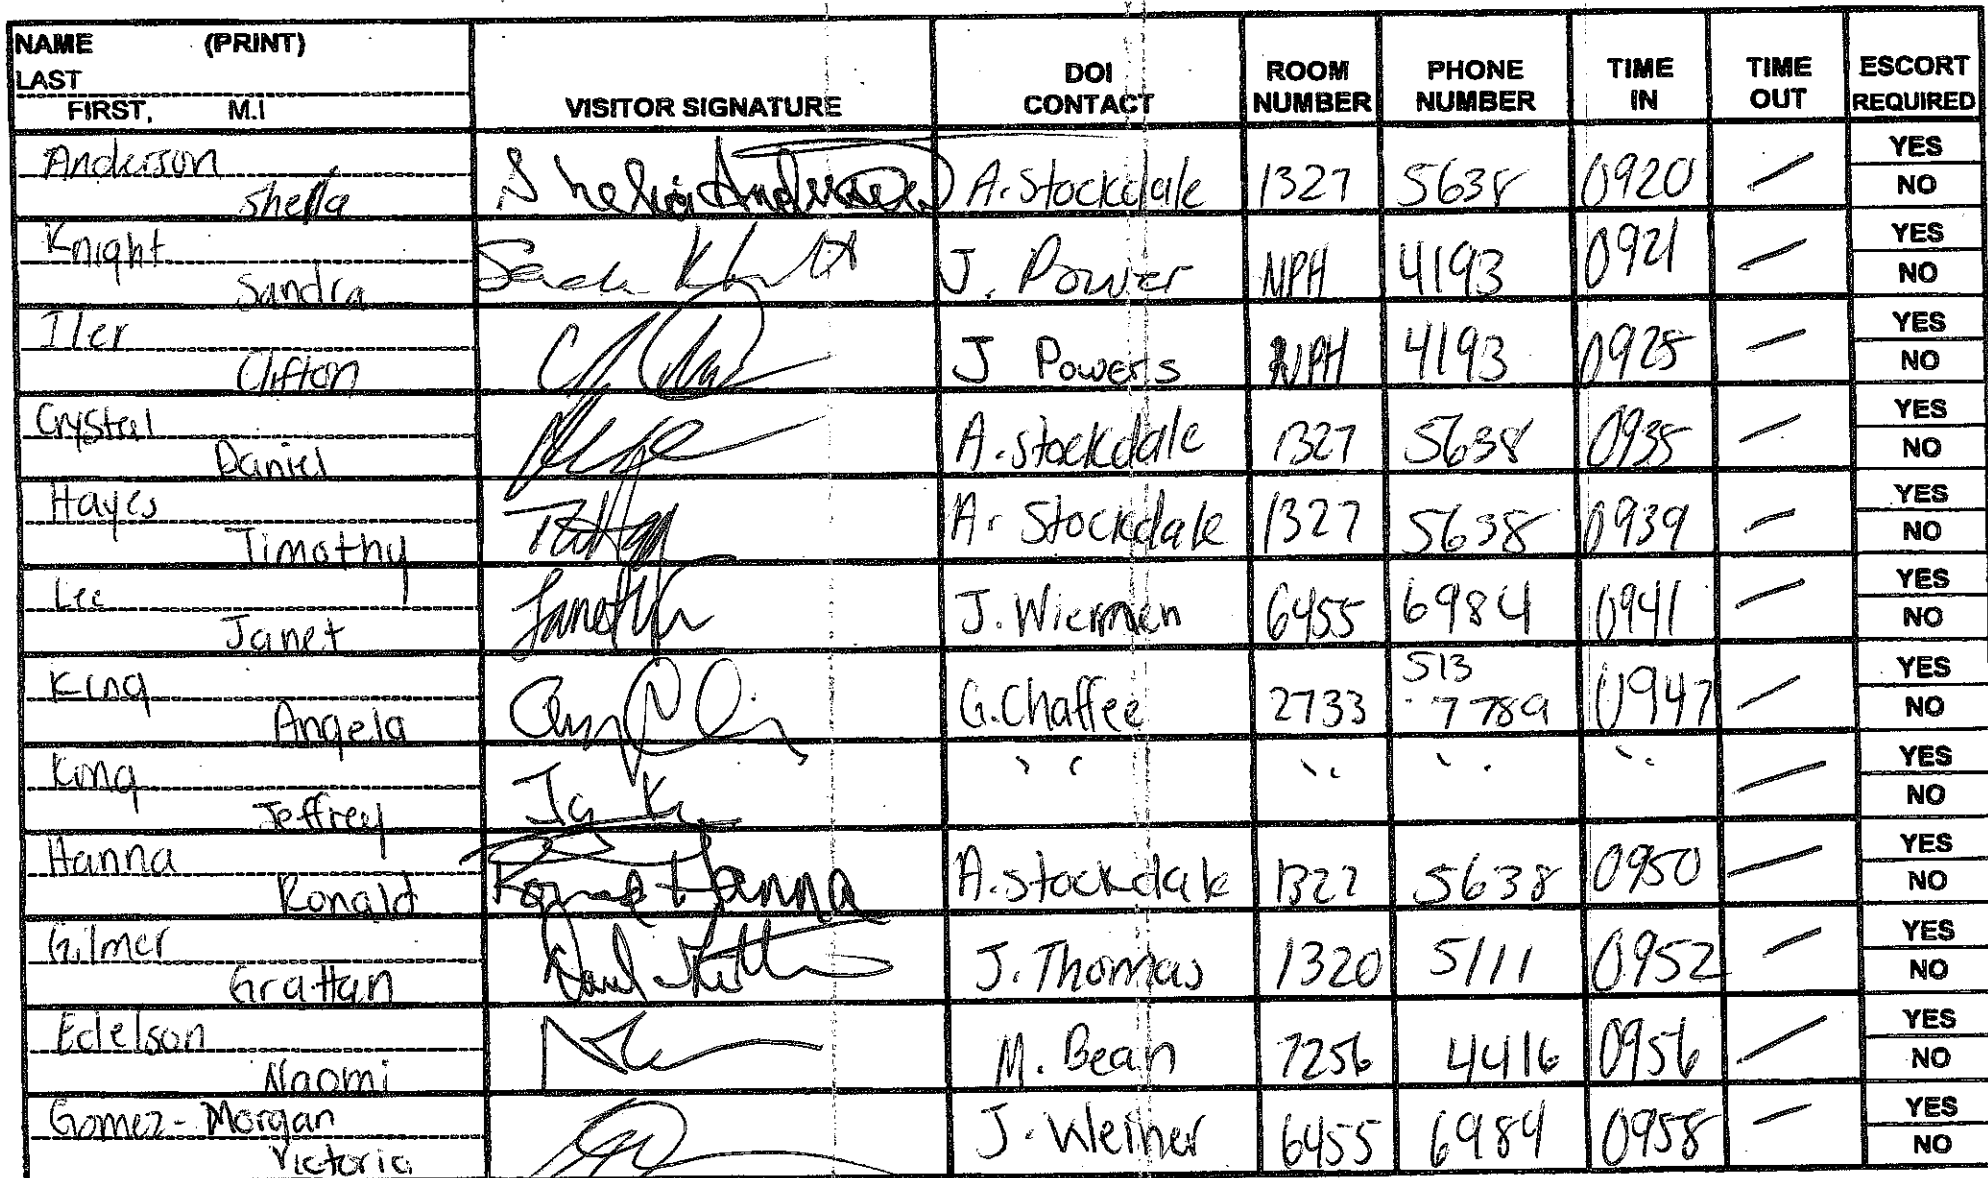 NAME (PRINT)
LAST
FIRST, M.I
VISITOR SIGNATURE
DOI CONTACT
ROOM NUMBER
PHONE NUMBER
TIME IN
TIME OUT
ESCORT REQUIRED
Anderson
Sheila
Shelia Anderson A. Stockdale 1327 5638 0920 — YES
NO
Knight
Sandra
J. Power NPH 4193 0921 — YES
NO
Iler
Clifton
J Powers NPH 4193 0928 — YES
NO
Crystal
Daniel
A. Stockdale 1327 5638 0935 — YES
NO
Hayes
Timothy
A. Stockdale 1327 5638 0939 — YES
NO
Lee
Janet
J. Wiermen 6455 6984 0941 — YES
NO
King
Angela
G. Chaffee 2733 513 7789 0947 — YES
NO
King
Jeffrey
" " " " — YES
NO
Hanna
Ronald
Ronald Hanna A. Stockdale 1327 5638 0950 — YES
NO
Gilmer
Grattan
J. Thomas 1320 5111 0952 — YES
NO
Edelson
Naomi
M. Bean 7256 4416 0956 — YES
NO
Gomez-Morgan
Victoria
J. Weiner 6455 6984 0958 — YES
NO